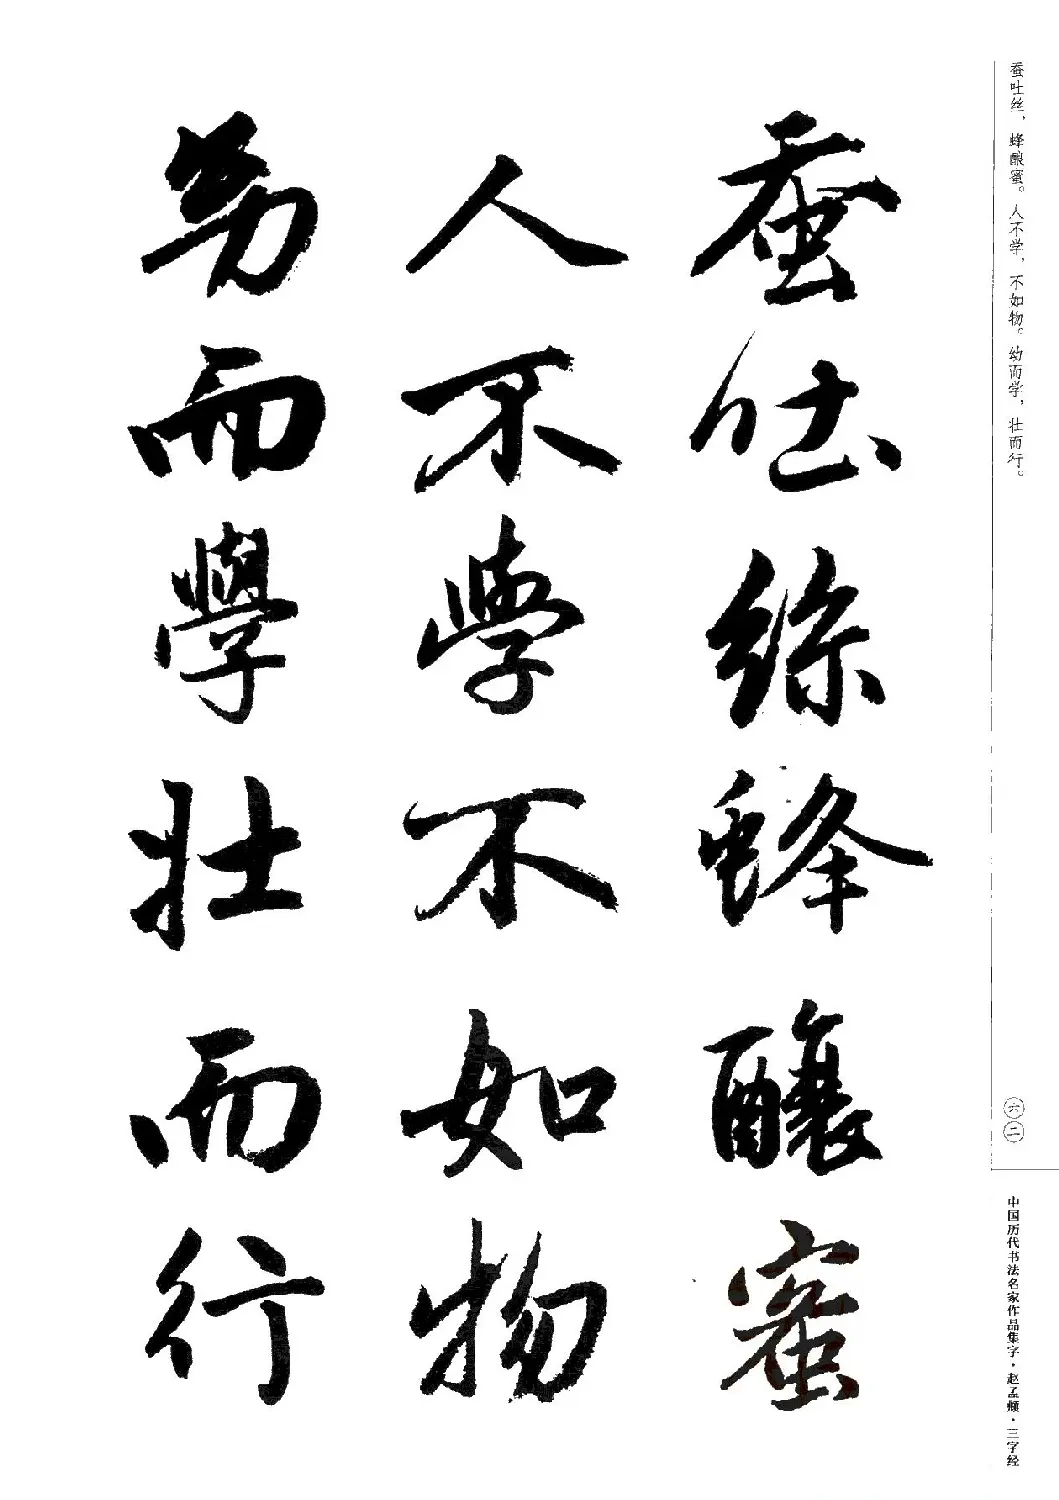 蚕吐丝，蜂酿蜜。人不学，不如物。幼而学，壮而行。
蚕吐絲蜂釀蜜
人不學不如物
㓜而學壮而行
六二
中国历代书法名家作品集字·赵孟頫·三字经